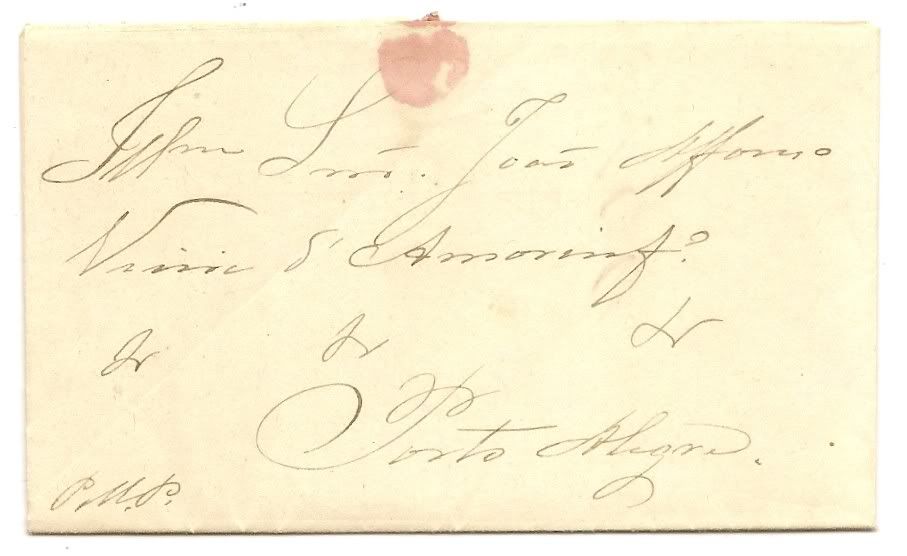 Illmo Snr. João Affonso
Vieira d'Amorim fº
&c &c &c
Porto Alegre.
P.M.P.